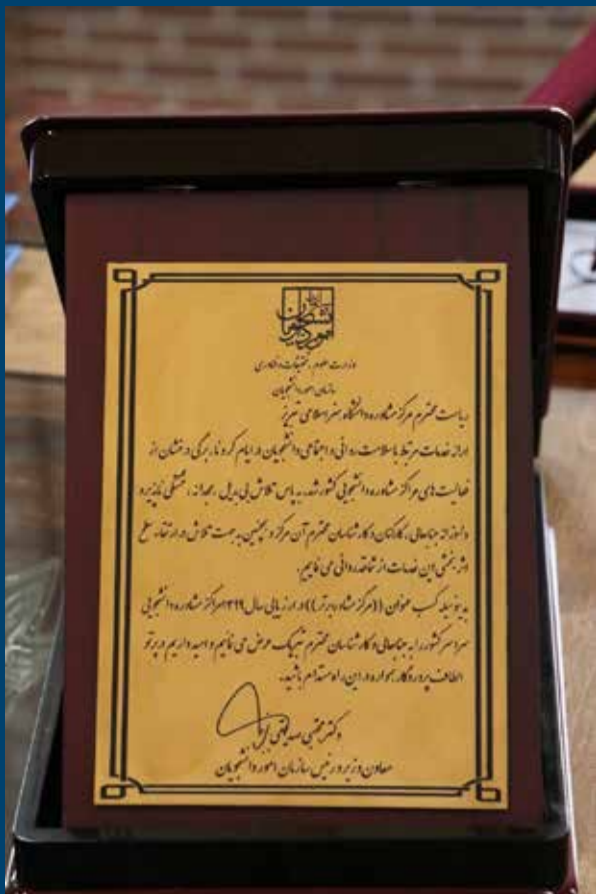 سازمان امور دانشجویان
وزارت علوم، تحقیقات و فناوری
سازمان امور دانشجویان
ریاست محترم مرکز مشاوره دانشگاه هنر اسلامی تبریز
ارائه خدمات مرتبط با سلامت روانی و اجتماعی دانشجویان در ایام کرونا، برگی درخشان از
فعالیت های مراکز مشاوره دانشجویی کشور شد. به پاس تلاش بی بدیل، مجدانه، خستگی ناپذیر و
دلسوزانه جنابعالی، کارکنان و کارشناسان محترم آن مرکز و همچنین به جهت تلاش در ارتقاء سطح
اثربخشی این خدمات از شما قدردانی می نماییم.
بدینوسیله کسب عنوان ((مرکز مشاوره برتر)) در ارزیابی سال ۱۳۹۹ مراکز مشاوره دانشجویی
سراسر کشور را به جنابعالی و کارشناسان محترم تبریک عرض می نماییم و امید داریم در پرتو
الطاف پروردگار همواره در این راه مستدام باشید.
دکتر مجتبی صدیقی
معاون وزیر و رئیس سازمان امور دانشجویان